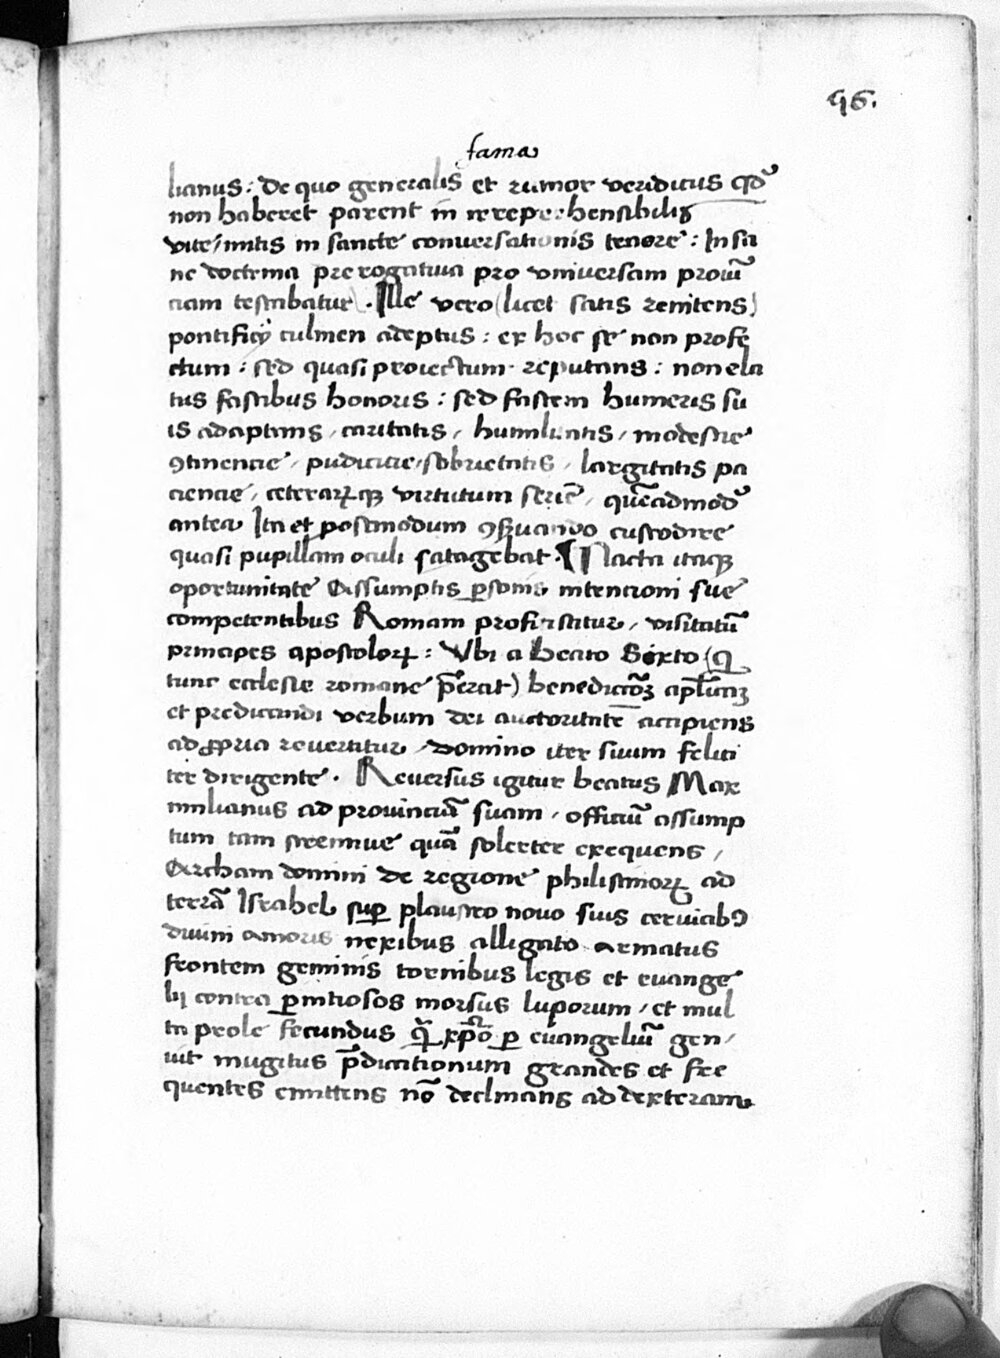 96.
fama
lianus : De quo generalis et rumor veridicus qđ
non haberet parent in irreprehensibilis
vite / mitis in sancte conversationis tenore : In sa
ne doctrina prerogativa pro universam provī
ciam testabatur . Ille vero (licet satis renitens)
pontificij culmen adeptus : ex hoc se non profe
ctum : sed quasi proiectum reputans : non ela
tus fastibus honoris : sed fastem humeris su
is adaptans , caritatis , humilitatis , modestie
9tinencie , pudicicie , sobrietatis , largitatis pa
ciencie , ceterarꝝqꝫ virtutum seriē , quēadmodū
antea Ita et postmodum 9ẞuando custodire
quasi pupillam oculi satagebat . ¶ Nacta itaqꝫ
oportunitate Assumptis ꝑsonis intencioni sue
competentibus Romam proficiscitur , visitatū
principes apostolorꝝ : Ubi a beato Sixto (q̄
tunc ecclesie romane p̄erat) benedictōꝫ apl̄icaꝫ
et predicandi verbum dei auctoritate accipiens
ad ꝓpria revertitur , Domino iter suum felici
ter dirigente . Reversus igitur beatus Max
imilianus ad provinciā suam , officiū assump
tum tam strennue quā solerter exequens ,
Archam domini de regione philistinorꝝ ad
terrā Israhel suꝑ plaustro novo sius cervicib9
divini amoris nexibus alligato armatus
frontem geminis cornibus legis et evange
lij contra ꝑnitiosos morsus luporum , et mul
ta prole fecundus q̄ꝫ xp̄o ꝑ evangeliū gen
uit mugitus p̄dicationum grandes et fre
quentes emittens nō declinans ad dexteram